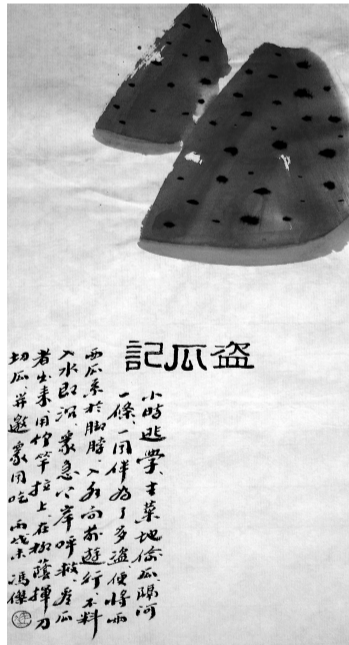 盗瓜記
小時逃學、去菜地偷瓜隔河
一條、一同伴為了多盜便將兩
西瓜系於脚脖、入水向前遊行、不料
入水即沉、衆急上岸呼救、看瓜
者出來、用竹竿拉上、在柳蔭揮刀
切瓜、并邀衆同吃 丙戌末 馮傑